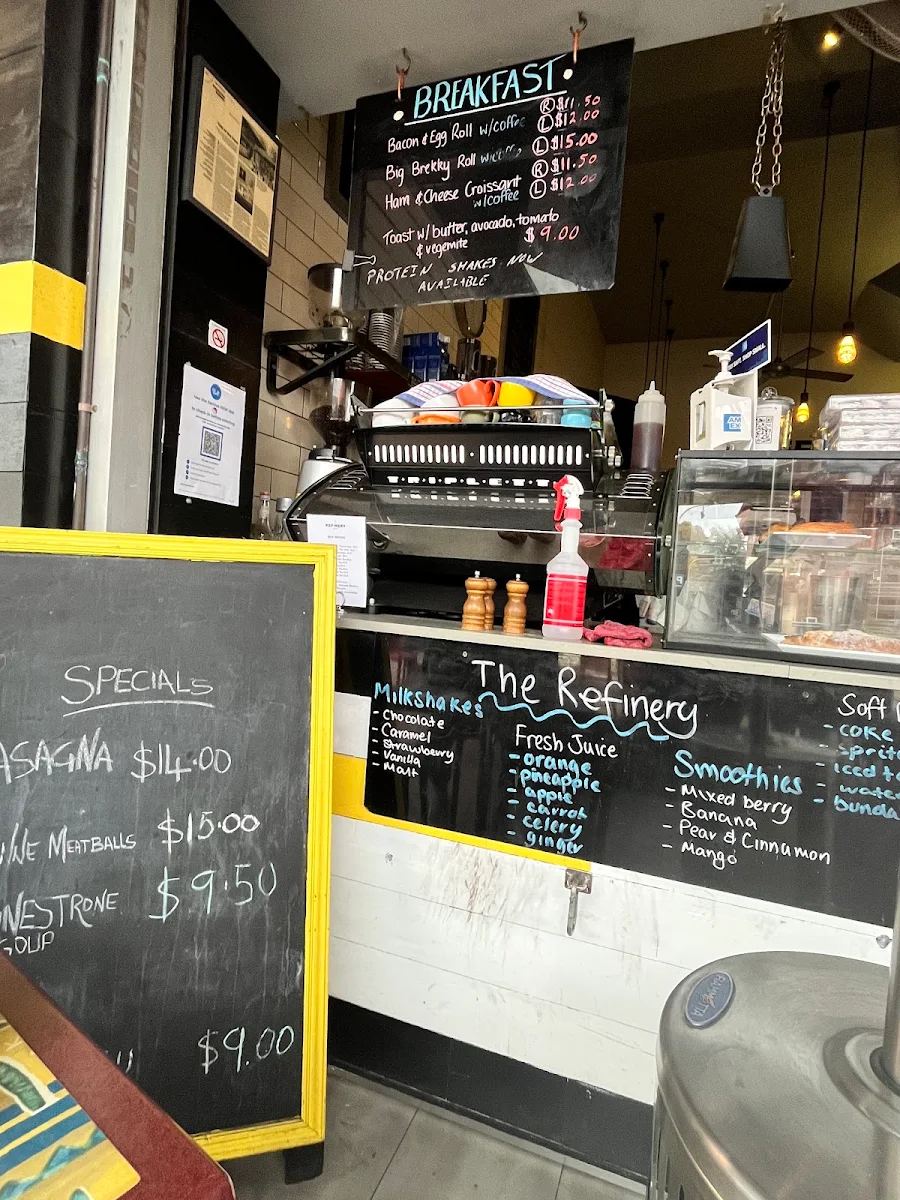 BREAKFAST
Bacon & Egg Roll w/coffee Ⓡ $11.50
Ⓛ $12.00
Big Brekky Roll Ⓛ $15.00
Ham & Cheese Croissant Ⓡ $11.50
w/coffee Ⓛ $12.00
Toast w/butter, avocado, tomato
& vegemite $9.00
PROTEIN SHAKES NOW
AVAILABLE
AM
EX
SPECIALS
ASAGNA $14.00
MEATBALLS $15.00
NESTRONE $9.50
SOUP
$9.00
The Refinery
Milkshakes
- Chocolate
- Caramel
- Strawberry
- Vanilla
- Malt
Fresh Juice
- orange
- pineapple
- apple
- carrot
- celery
- ginger
Smoothies
- Mixed berry
- Banana
- Pear & Cinnamon
- Mango
Soft
- coke
- sprite
- iced t
- water
- bunda